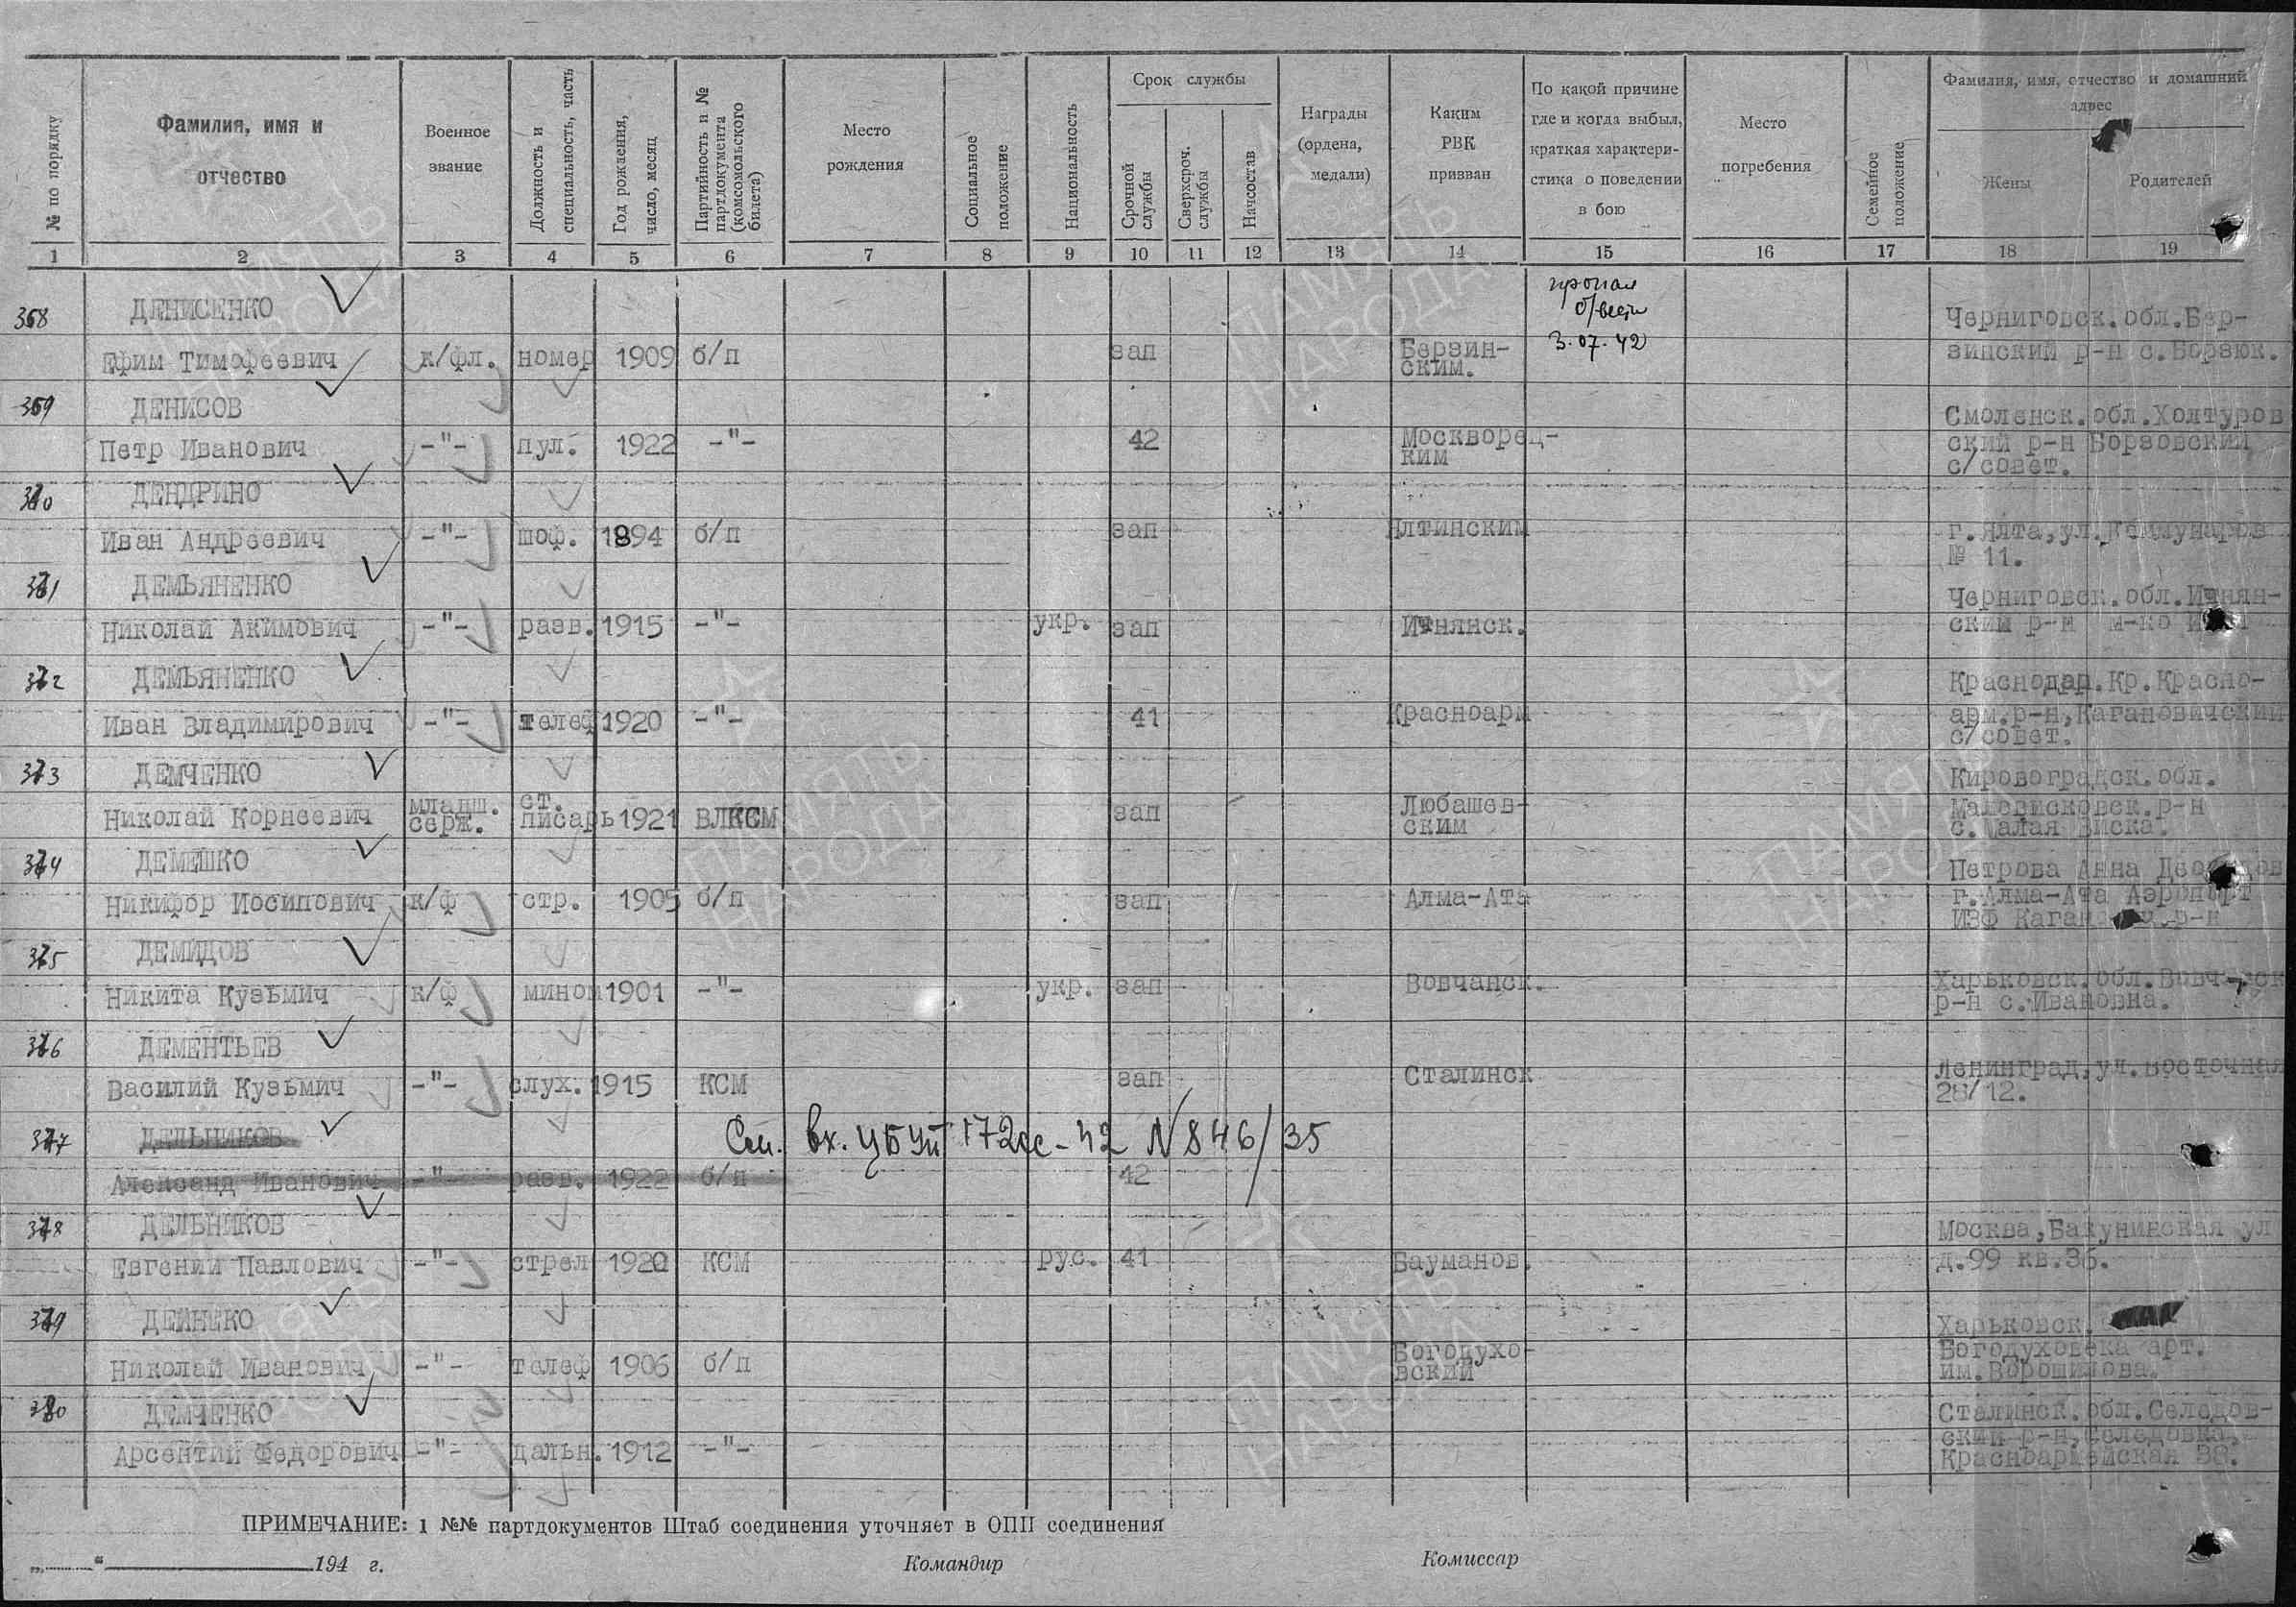 № по порядку
Фамилия, имя и
отчество
Военное
звание
Должность и
специальность, часть
Год рождения,
число, месяц
Партийность и №
партдокумента
(комсомольского
билета)
Место
рождения
Социальное
положение
Национальность
Срок службы
Срочной
службы
Сверхсроч.
службы
Начсостав
Награды
(ордена,
медали)
Каким
РВК
призван
По какой причине
где и когда выбыл,
краткая характери-
стика о поведении
в бою
Место
погребения
Семейное
положение
Фамилия, имя, отчество и домашний
адрес
Жены
Родителей
1 2 3 4 5 6 7 8 9 10 11 12 13 14 15 16 17 18 19
368 ДЕНИСЕНКО пропал
б/вести
Черниговск.обл.Бер-
Ефим Тимофеевич к/фл. номер 1909 б/п зап Берзин-
ским. 3.07.42 зинский р-н с.Борзюк.
369 ДЕНИСОВ Смоленск.обл.Холтуров
Петр Иванович -"- пул. 1922 -"- 42 Москворец-
ким ский р-н Борзовский
с/совет.
370 ДЕНДРИНО
Иван Андреевич -"- шоф. 1894 б/п зап Ялтинским г.Ялта,ул.Коммунаров
№ 11.
371 ДЕМЬЯНЕНКО Черниговск.обл.Ичнян-
Николай Акимович -"- разв. 1915 -"- укр. зап Ичнянск. ский р-н м-ко
372 ДЕМЬЯНЕНКО Краснодар.Кр.Красно-
Иван Владимирович -"- телеф 1920 -"- 41 Красноарм арм.р-н,Кагановичский
с/совет.
373 ДЕМЧЕНКО Кировоградск.обл.
Николай Корнеевич младш.
серж. ст.
писарь 1921 ВЛКСМ зап Любашев-
ским Маловисковск.р-н
с.Малая Виска.
374 ДЕМЕШКО Петрова Анна
Никифор Иосипович к/ф стр. 1905 б/п зап Алма-Ата г.Алма-Ата Аэропорт
ИЗФ р-н
375 ДЕМИДОВ
Никита Кузьмич к/ф мином 1901 -"- укр. зап Вовчанск. Харьковск.обл.
р-н с.Ивановна.
376 ДЕМЕНТЬЕВ
Василий Кузьмич -"- слух. 1915 КСМ зап Сталинск Ленинград,ул.Восточная
28/12.
377 ДЕЛЬНИКОВ См. вх. ЦБУП 172сс-42 N 846/35
Александ Иванович -"- разв. 1922 б/п 42
378 ДЕЛЬНИКОВ Москва,Бакунинская ул
Евгений Павлович -"- стрел 1920 КСМ рус. 41 Бауманов. д.99 кв.36.
379 ДЕЙНЕКО Харьковск.
Николай Иванович -"- телеф 1906 б/п Богодухо-
вский Богодуховска арт.
им.Ворошилова.
380 ДЕМЧЕНКО Сталинск.обл.Селедов-
Арсентий Федорович -"- дальн. 1912 -"- ский р-н,Селедовка,
Красноармейская 38.
ПРИМЕЧАНИЕ: 1 №№ партдокументов Штаб соединения уточняет в ОПП соединения
„ “ 194 г. Командир Комиссар
ПАМЯТЬ
НАРОДА